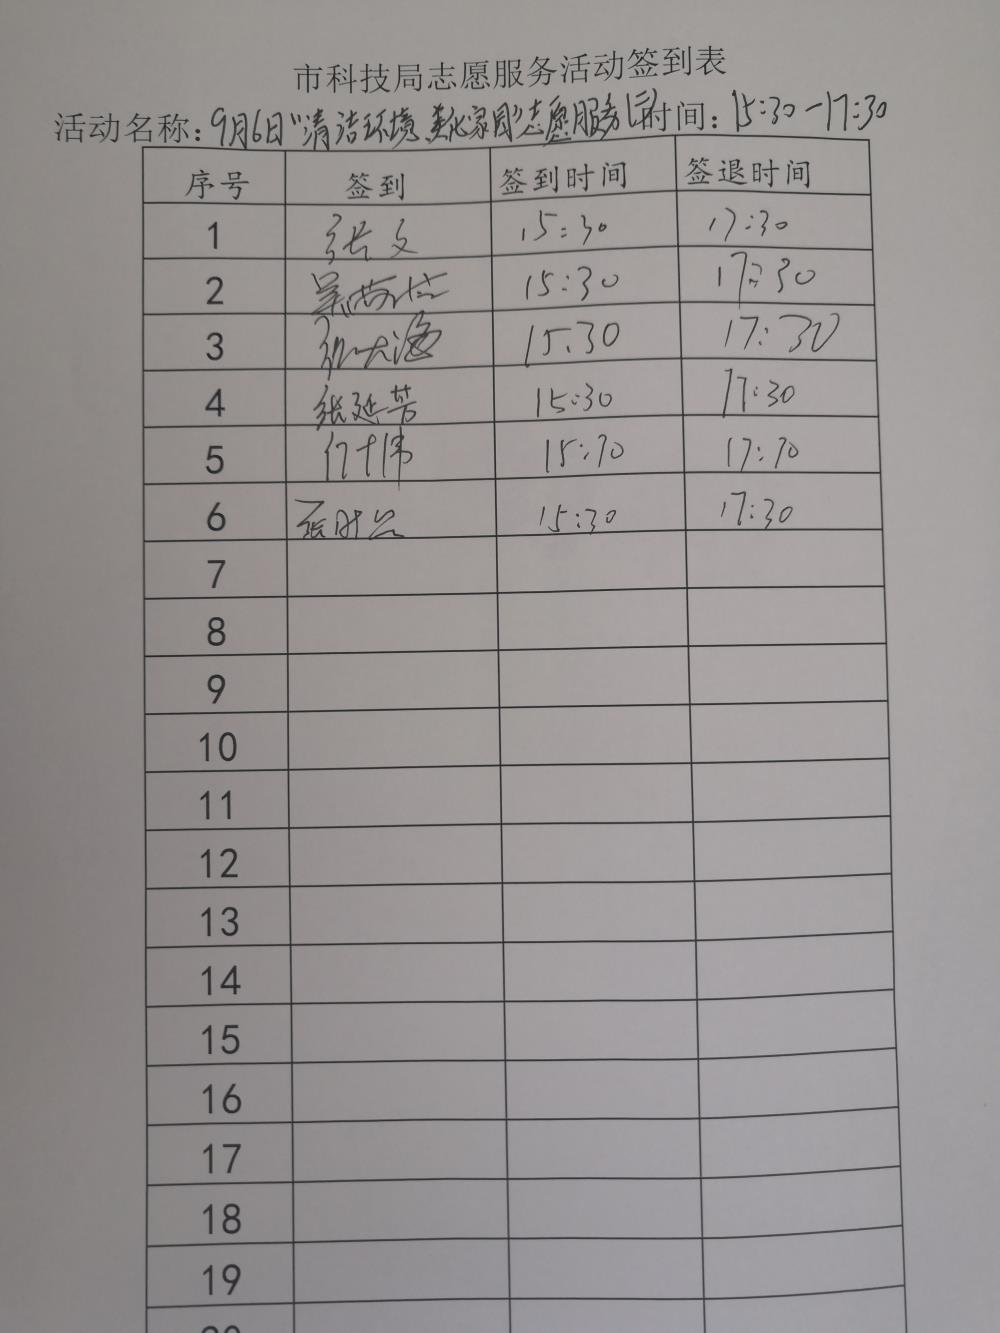 市科技局志愿服务活动签到表
活动名称：9月6日“清洁环境 美化家园”志愿服务(三)时间：15:30-17:30
序号 签到 签到时间 签退时间
1 张文 15:30 17:30
2 15:30 17:30
3 张大海 15:30 17:30
4 张延芳 15:30 17:30
5 付十伟 15:30 17:30
6 15:30 17:30
7
8
9
10
11
12
13
14
15
16
17
18
19
20